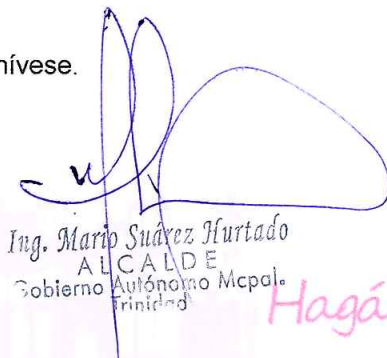 nívese.
Ing. Mario Suárez Hurtado
ALCALDE
Gobierno Autónomo Mcpal.
Trinidad
Hagá